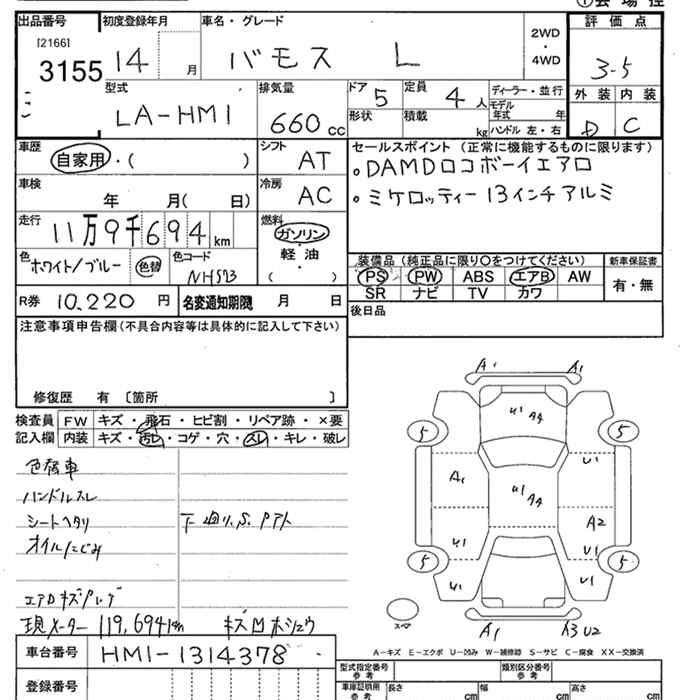 出品番号 初度登録年月 車名・グレード 評価点
[2166]
3155 14 月 バモス L 2WD・4WD 3-5
型式 LA-HM1 排気量 660 cc
ドア 5 定員 4人 ディーラー・並行
形状 積載 kg モデル年式 年 ハンドル 左・右
外装 D 内装 C
車歴 自家用・( ) シフト AT
車検 年 月( 日) 冷房 AC
走行 11万9千694 km 燃料 ガソリン・軽油・( )
色 ホワイト/ブルー 色替 色コード NH573
R券 10,220 円 名変通知期限 月 日
セールスポイント (正常に機能するものに限ります)
・DAMDロコボーイエアロ
・ミケロッティー13インチアルミ
装備品 (純正品に限り〇をつけてください) 新車保証書
PS PW ABS エアB AW 有・無
SR ナビ TV カワ
後日品
注意事項申告欄(不具合内容等は具体的に記入して下さい)
修復歴 有 〔箇所 〕
検査員 FW キズ・飛石・ヒビ割・リペア跡・×要
記入欄 内装 キズ・汚レ・コゲ・穴・スレ・キレ・破レ
色替車
ハンドルスレ
シートヘタリ 下廻り.S.Pアト
オイルにじみ
エアロキズ
現メーター 119,694km キズ凹ホシュウ
A1 A1
U1 A4
5 5
A1 U1 A4 U1
A2
U1 U1
5 5
U1 U1
スペア
A1 A3 U2
A-キズ E-エクボ U-凹み W-補修跡 S-サビ C-腐食 XX-交換済
車台番号 HM1-1314378
登録番号
型式指定番号 参考 類別区分番号 参考
車庫証明用 参考 長さ cm 幅 cm 高さ cm